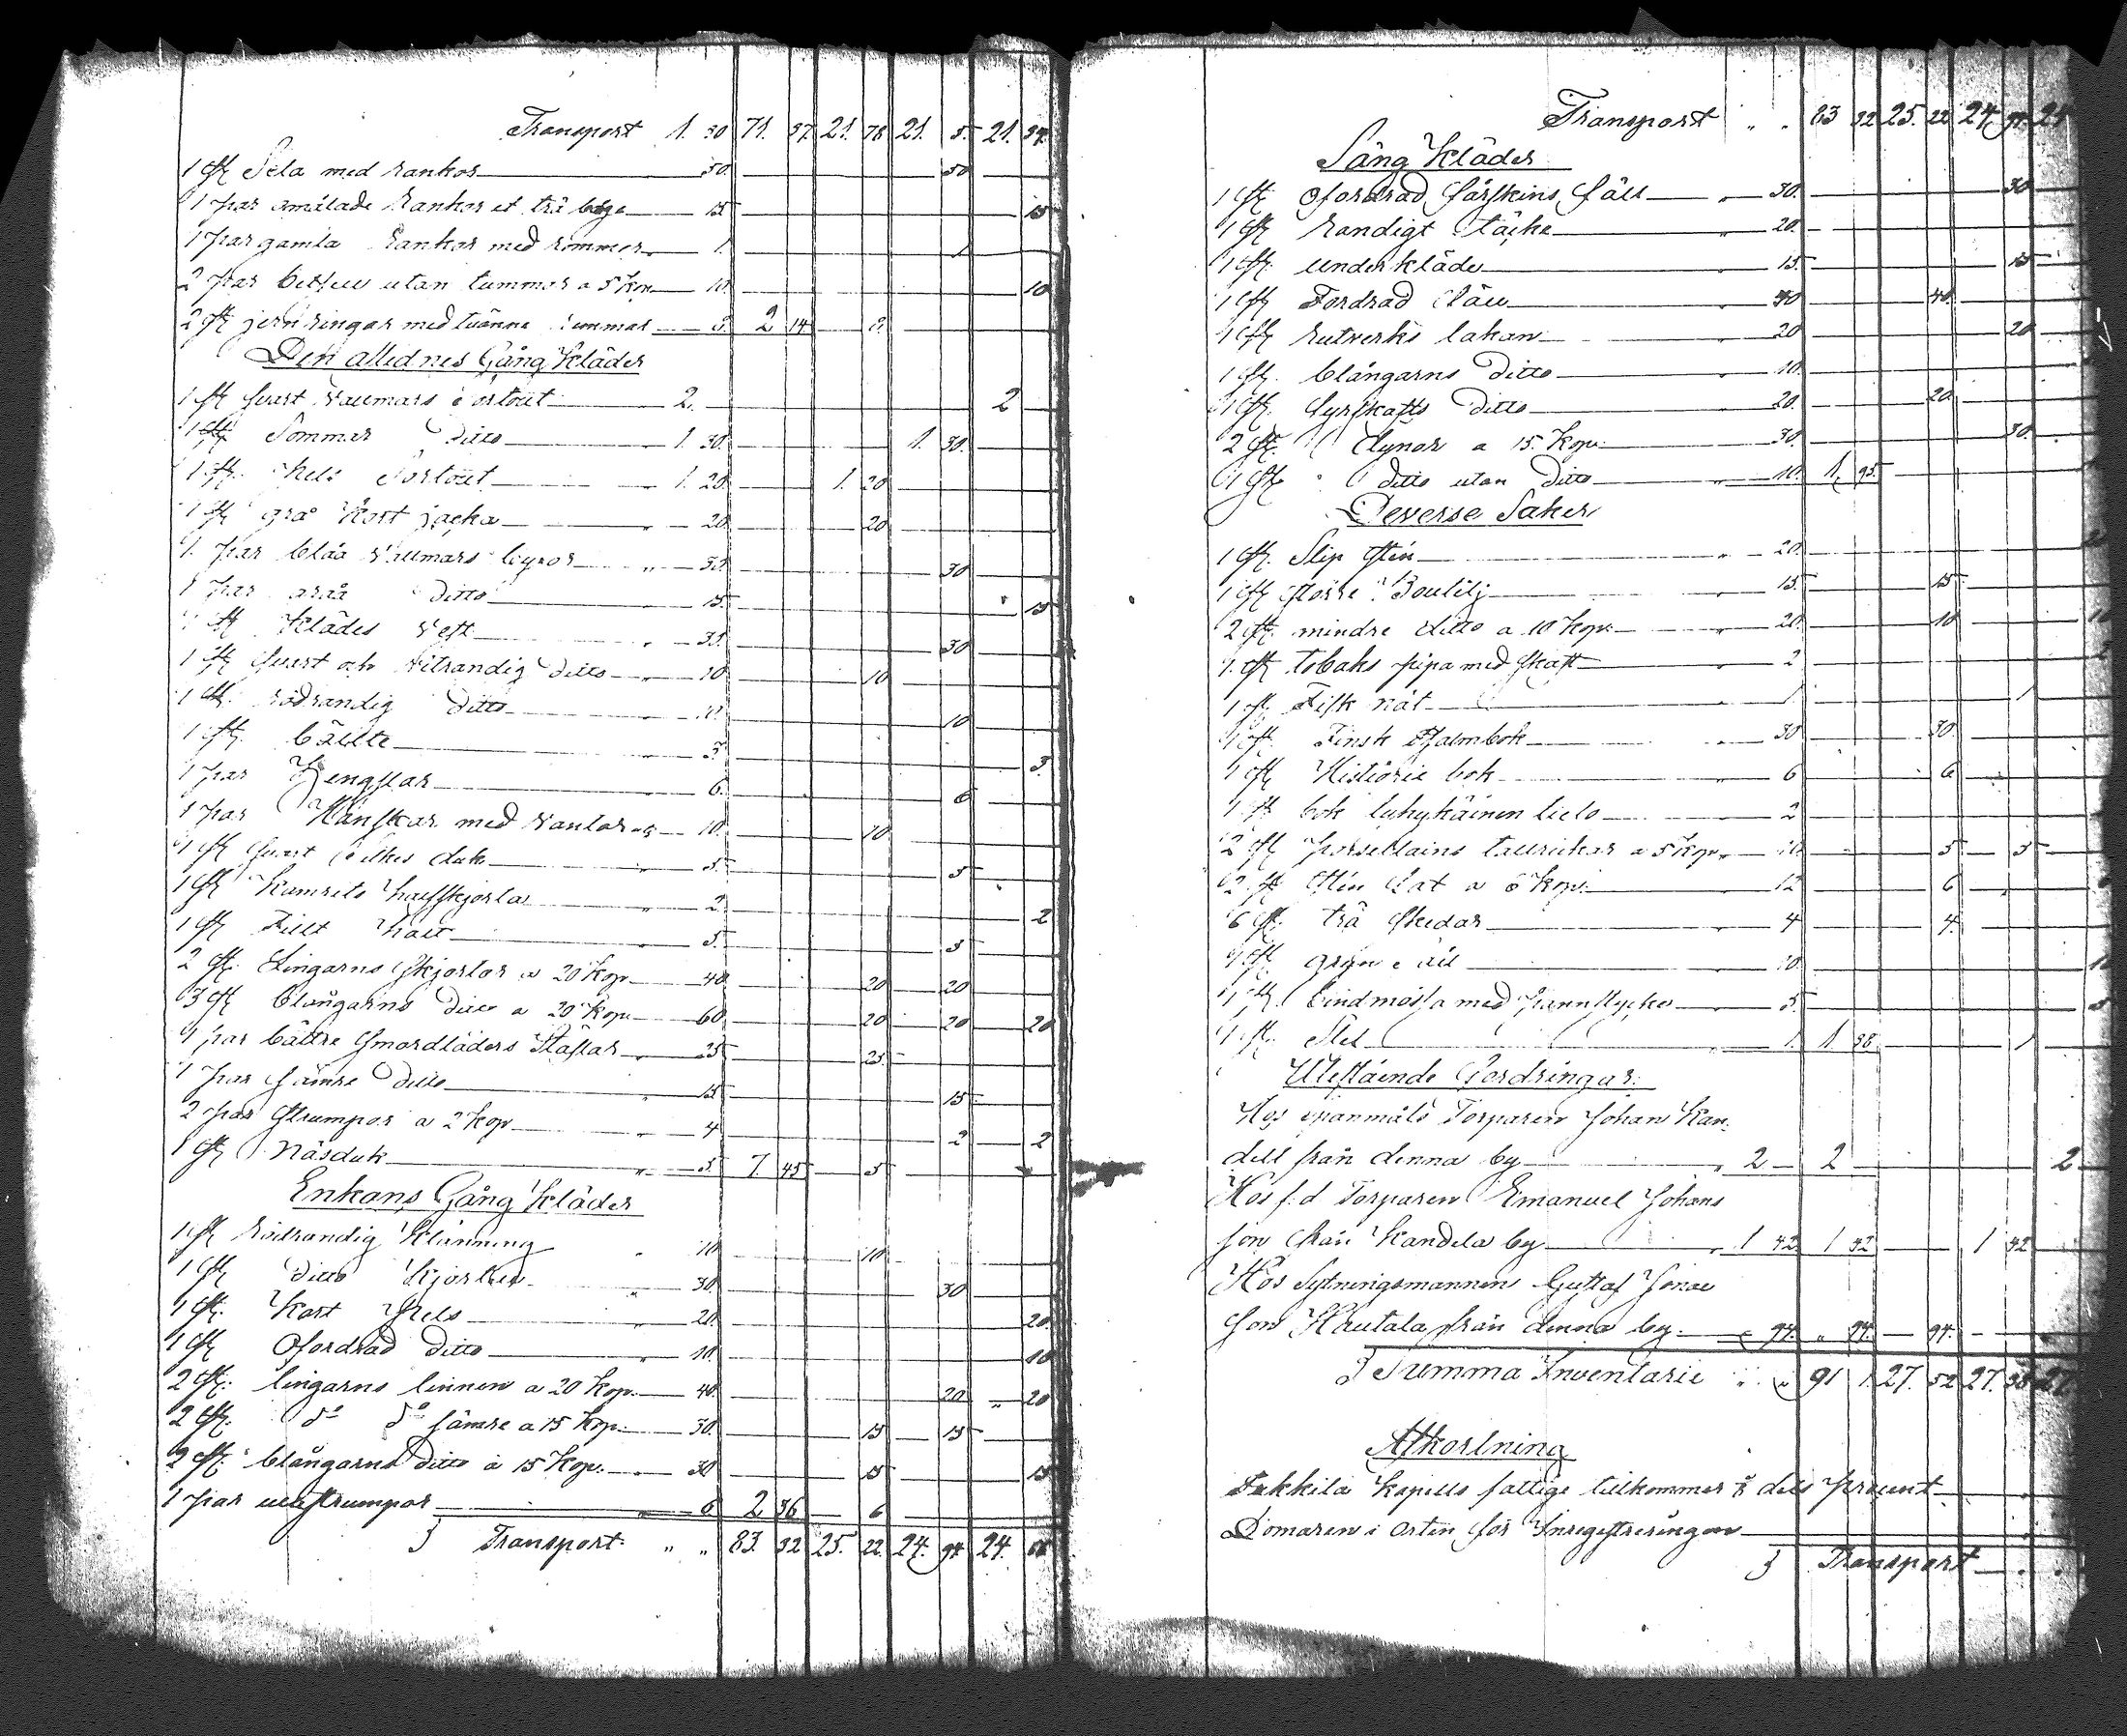 Transport 1. 30 71. 37. 21. 78 21. 5. 21. 54.
1 st Sela med rankor 50. 50
1 par omålade Rankor et trä båge 15 15
1 par gamla Rankor med remmar 1. 1
2 par betsell utan tummar a 5 Kop 10. 10
2 st jernringar med tvänne remmar 3. 2 14 3.
Den aflidnes Gång Kläder
1 st svart Vallmars sortout 2. 2
1 st Sommar Ditto 1. 30. 1. 30.
1 st. Sortout 1. 20. 1. 20
1 st grå Kort jacka 20 20
1. par blåa Vallmars byxor 30. 30
1 par gråa Ditto 15. 15
1 st Klädes Vest 30. 30
1 st svart och vitrandig Ditto 10 10
1 st. rödrandig Ditto 10. 10
1 st. bällte 3. 3.
1 par Hengslar 6. 6
1 par Hanskar med vantar 10. 10.
1 st svart silkes duk 5. 5
1 st Kamrets halfskjorta 2. 2
1 st Fillt hatt 5. 5
2 st. Lingarns skjortor a 20 Kop 40 20 20
3 st blångarns Ditto a 20 Kop 60 20 20 20
1 par bättre smordläders Stöflar 25 25.
1 par sämre Ditto 15 15
2 par strumpor a 2 Kop 4 2 2
1 st Näsduk 5. 7. 45 5
Enkans Gång Kläder
1 st rödrandig Klänning 10 10
1 st Ditto Kjortel 30. 30
1 st. Kort Pels 20. 20.
1 st Ofordrad Ditto 10. 10
2 st. lingarns linnen a 20 Kop. 40. 20 20
2 st. do do sämre a 15 Kop. 30. 15 15
2 st. blångarns Ditto a 15 Kop. 30 15 15
1 par ullstrumpor 6 2 36 6
Transport: 83. 32 25. 22. 24. 94 24.
Transport 83 32 25. 22 24 94. 24
Säng Kläder
1 st ofordrad fårskins fäll 30. 30
1 st Randigt täcke 20.
1 st. underkläde 15. 15
1 st Fordrad 40 40.
1 st Rutverks lakan 20 20
1 st. blångarns Ditto 10.
1 st. fyrskafts Ditto 20. 20
2 st. Dynor a 15. Kop. 30. 30.
1 st. ditto utan Ditto 10. 1, 95.
Deverse Saker
1 st. Slip sten 20.
1 st större Boutelj 15. 15
2 st. mindre ditto a 10 Kop. 20. 10
1. st tobaks pipa med skaft 2
1 st. Fisk nät 1 1
1 st. Finsk Psalmbok 30 30.
1 st Historie bok 6 6
1 st bok lyhykäinen 2
2 st porsellains tallrickar a 5 Kop 10 5 5
2 st sten fat a 6 Kop. 12 6
6 st. trä skedar 4 4.
1 st grön 10.
1 st bindmössa med pannstycke 5.
1 st. 1. 1 38 1
Utestående Fordringar.
Hos spanmåls Torparen Johan Kan
dell från denna by 2 2 2
Hos f.d Torparen Emanuel Johans
son från Kandela by 1 42 1 42 1 42
Hos Sytningsmannen Gustaf Jonae
son Hautala från denna by 94. 94. 94.
Summa Inventarie 91 1. 27. 52 27. 27.
Afkortning
Kapells fattige tillkommer 1/8 dels procent
Domaren i orten för Inregistreringen
Transport